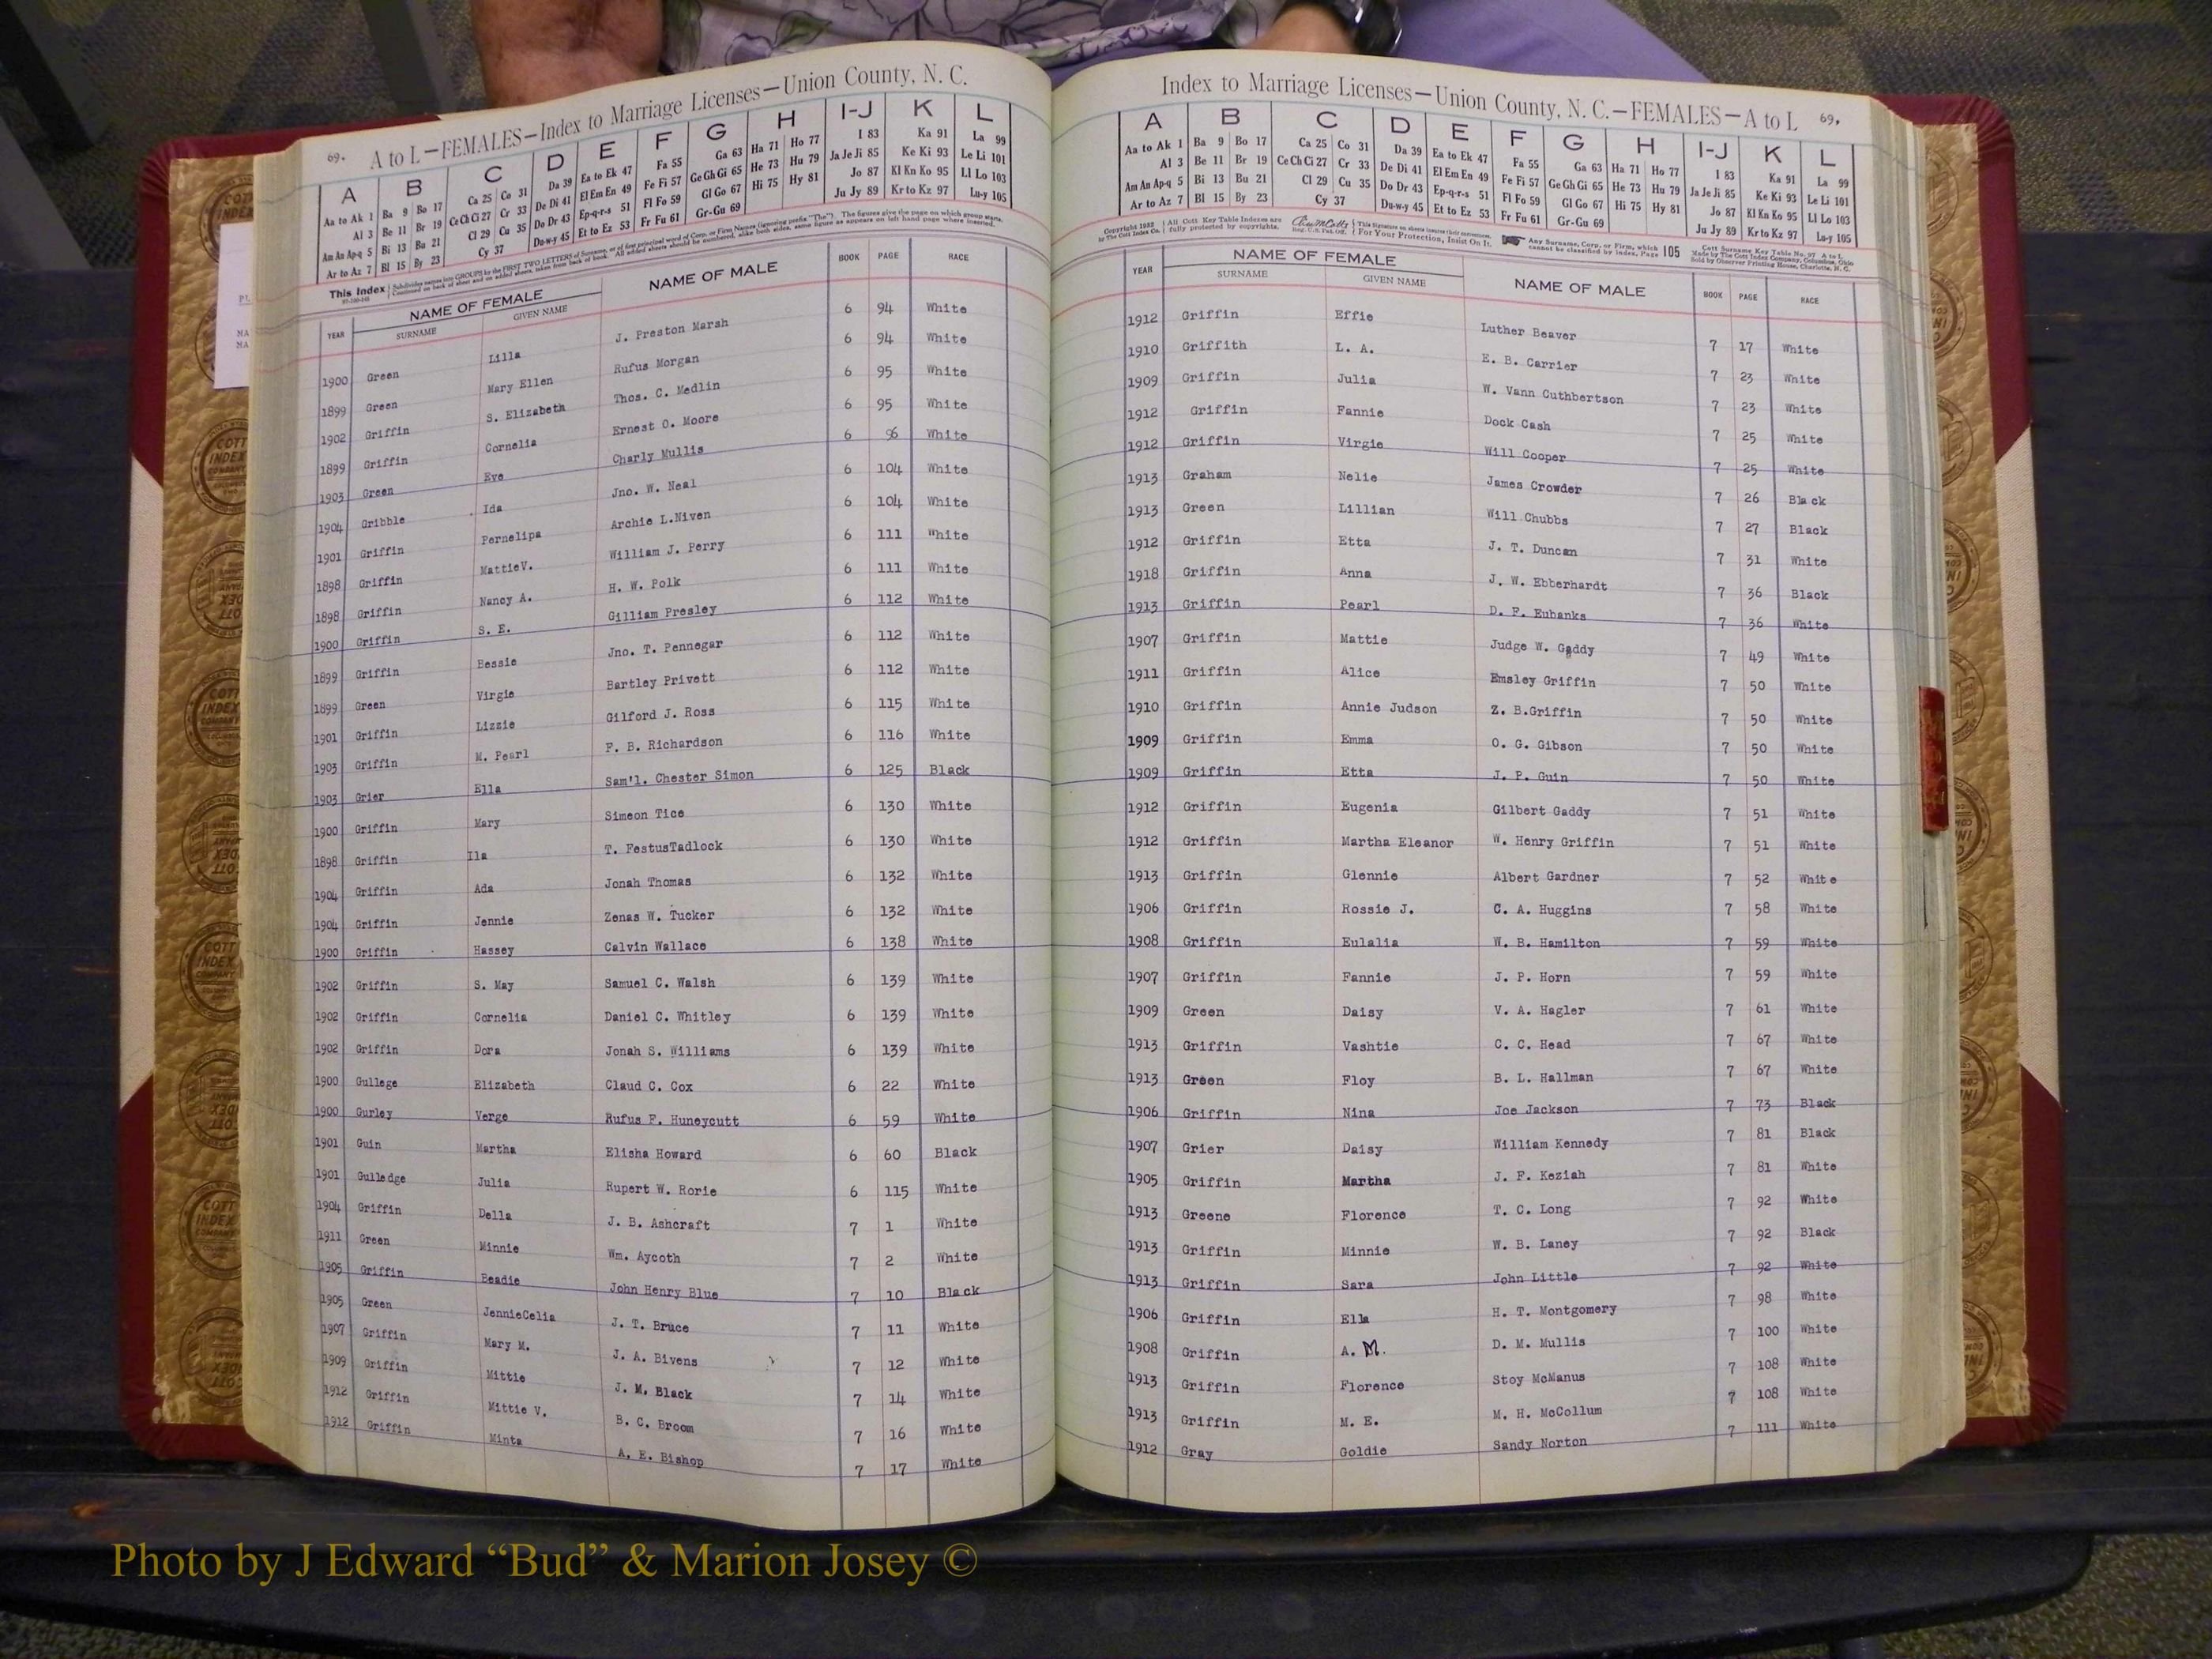 69. A to L—FEMALES—Index to Marriage Licenses—Union County, N. C.
A B C D E F G H I-J K L
Aa to Ak 1 Ba 9 Bo 17 Ca 25 Co 31 Da 39 Ea to Ek 47 Fa 55 Ga 63 Ha 71 Ho 77 I 83 Ka 91 La 99
Al 3 Be 11 Br 19 Ce Ch Ci 27 Cr 33 De Di 41 El Em En 49 Fe Fi 57 Ge Gh Gi 65 He 73 Hu 79 Ja Je Ji 85 Ke Ki 93 Le Li 101
Am An Ap-q 5 Bi 13 Bu 21 Cl 29 Cu 35 Do Dr 43 Ep-q-r-s 51 Fl Fo 59 Gl Go 67 Hi 75 Hy 81 Jo 87 Kl Kn Ko 95 Ll Lo 103
Ar to Az 7 Bl 15 By 23 Cy 37 Du-w-y 45 Et to Ez 53 Fr Fu 61 Gr-Gu 69 Ju Jy 89 Kr to Kz 97 Lu-y 105
This Index
YEAR NAME OF FEMALE SURNAME GIVEN NAME NAME OF MALE BOOK PAGE RACE
1900 Green Lilla J. Preston Marsh 6 94 White
1899 Green Mary Ellen Rufus Morgan 6 94 White
1902 Griffin S. Elizabeth Thos. C. Medlin 6 95 White
1899 Griffin Cornelia Ernest O. Moore 6 95 White
1903 Green Eve Charly Mullis 6 96 White
1904 Gribble Ida Jno. W. Neal 6 104 White
1901 Griffin Pernelipa Archie L.Niven 6 104 White
1898 Griffin MattieV. William J. Perry 6 111 White
1898 Griffin Nancy A. H. W. Polk 6 111 White
1900 Griffin S. E. Gilliam Presley 6 112 White
1899 Griffin Bessie Jno. T. Pennegar 6 112 White
1899 Green Virgie Bartley Privett 6 112 White
1901 Griffin Lizzie Gilford J. Ross 6 115 White
1903 Griffin M. Pearl F. B. Richardson 6 116 White
1903 Grier Ella Sam'l. Chester Simon 6 125 Black
1900 Griffin Mary Simeon Tice 6 130 White
1898 Griffin Ila T. FestusTadlock 6 130 White
1904 Griffin Ada Jonah Thomas 6 132 White
1904 Griffin Jennie Zenas W. Tucker 6 132 White
1900 Griffin Hassey Calvin Wallace 6 138 White
1902 Griffin S. May Samuel C. Walsh 6 139 White
1902 Griffin Cornelia Daniel C. Whitley 6 139 White
1902 Griffin Dora Jonah S. Williams 6 139 White
1900 Gullege Elizabeth Claud C. Cox 6 22 White
1900 Gurley Verge Rufus F. Huneycutt 6 59 White
1901 Guin Martha Elisha Howard 6 60 Black
1901 Gulledge Julia Rupert W. Rorie 6 115 White
1904 Griffin Della J. B. Ashcraft 7 1 White
1911 Green Minnie Wm. Aycoth 7 2 White
1905 Griffin Beadie John Henry Blue 7 10 Black
1905 Green JennieCelia J. T. Bruce 7 11 White
1907 Griffin Mary M. J. A. Bivens 7 12 White
1909 Griffin Mittie J. M. Black 7 14 White
1912 Griffin Mittie V. B. C. Broom 7 16 White
1912 Griffin Minta A. E. Bishop 7 17 White
Index to Marriage Licenses—Union County, N. C.—FEMALES—A to L 69.
A B C D E F G H I-J K L
Aa to Ak 1 Ba 9 Bo 17 Ca 25 Co 31 Da 39 Ea to Ek 47 Fa 55 Ga 63 Ha 71 Ho 77 I 83 Ka 91 La 99
Al 3 Be 11 Br 19 Ce Ch Ci 27 Cr 33 De Di 41 El Em En 49 Fe Fi 57 Ge Gh Gi 65 He 73 Hu 79 Ja Je Ji 85 Ke Ki 93 Le Li 101
Am An Ap-q 5 Bi 13 Bu 21 Cl 29 Cu 35 Do Dr 43 Ep-q-r-s 51 Fl Fo 59 Gl Go 67 Hi 75 Hy 81 Jo 87 Kl Kn Ko 95 Ll Lo 103
Ar to Az 7 Bl 15 By 23 Cy 37 Du-w-y 45 Et to Ez 53 Fr Fu 61 Gr-Gu 69 Ju Jy 89 Kr to Kz 97 Lu-y 105
YEAR NAME OF FEMALE SURNAME GIVEN NAME NAME OF MALE BOOK PAGE RACE
1912 Griffin Effie Luther Beaver 7 17 White
1910 Griffith L. A. E. B. Carrier 7 23 White
1909 Griffin Julia W. Vann Cuthbertson 7 23 White
1912 Griffin Fannie Dock Cash 7 25 White
1912 Griffin Virgie Will Cooper 7 25 White
1913 Graham Nelie James Crowder 7 26 Black
1913 Green Lillian Will Chubbs 7 27 Black
1912 Griffin Etta J. T. Duncan 7 31 White
1918 Griffin Anna J. W. Ebberhardt 7 36 Black
1913 Griffin Pearl D. F. Eubanks 7 36 White
1907 Griffin Mattie Judge W. Gaddy 7 49 White
1911 Griffin Alice Emsley Griffin 7 50 White
1910 Griffin Annie Judson Z. B.Griffin 7 50 White
1909 Griffin Emma O. G. Gibson 7 50 White
1909 Griffin Etta J. P. Guin 7 50 White
1912 Griffin Eugenia Gilbert Gaddy 7 51 White
1912 Griffin Martha Eleanor W. Henry Griffin 7 51 White
1913 Griffin Glennie Albert Gardner 7 52 White
1906 Griffin Rossie J. C. A. Huggins 7 58 White
1908 Griffin Eulalia W. B. Hamilton 7 59 White
1907 Griffin Fannie J. P. Horn 7 59 White
1909 Green Daisy V. A. Hagler 7 61 White
1913 Griffin Vashtie C. C. Head 7 67 White
1913 Green Floy B. L. Hallman 7 67 White
1906 Griffin Nina Joe Jackson 7 73 Black
1907 Grier Daisy William Kennedy 7 81 Black
1905 Griffin Martha J. F. Keziah 7 81 White
1913 Greene Florence T. C. Long 7 92 White
1913 Griffin Minnie W. B. Laney 7 92 Black
1913 Griffin Sara John Little 7 92 White
1906 Griffin Ella H. T. Montgomery 7 98 White
1908 Griffin A. M. D. M. Mullis 7 100 White
1913 Griffin Florence Stoy McManus 7 108 White
1913 Griffin M. E. M. H. McCollum 7 108 White
1912 Gray Goldie Sandy Norton 7 111 White
Photo by J Edward “Bud” & Marion Josey ©